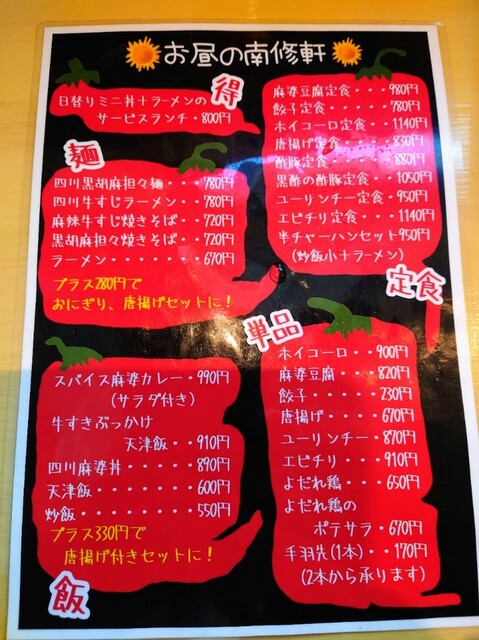 お昼の南修軒
得
日替りミニ丼+ラーメンの
サービスランチ・800円
麺
四川黒胡麻担々麺・・・780円
四川牛すじラーメン・・780円
麻辣牛すじ焼きそば・・720円
黒胡麻担々焼きそば・・720円
ラーメン・・・・・・・670円
プラス280円で
おにぎり、唐揚げセットに!
麻婆豆腐定食・・・980円
餃子定食・・・・・780円
ホイコーロ定食・・1140円
唐揚げ定食・・・・830円
酢豚定食・・・・・880円
黒酢の酢豚定食・・1050円
ユーリンチー定食・950円
エビチリ定食・・・1140円
半チャーハンセット950円
(炒飯小+ラーメン)
定食
スパイス麻婆カレー・990円
(サラダ付き)
牛すきぶっかけ
天津飯・・910円
四川麻婆丼・・・・890円
天津飯・・・・・・600円
炒飯・・・・・・・550円
プラス330円で
唐揚げ付きセットに!
飯
単品
ホイコーロ・・900円
麻婆豆腐・・・820円
餃子・・・・・230円
唐揚げ・・・・670円
ユーリンチー・870円
エビチリ・・・910円
よだれ鶏・・・650円
よだれ鶏の
ポテサラ・670円
手羽先(1本)・・170円
(2本から承ります)